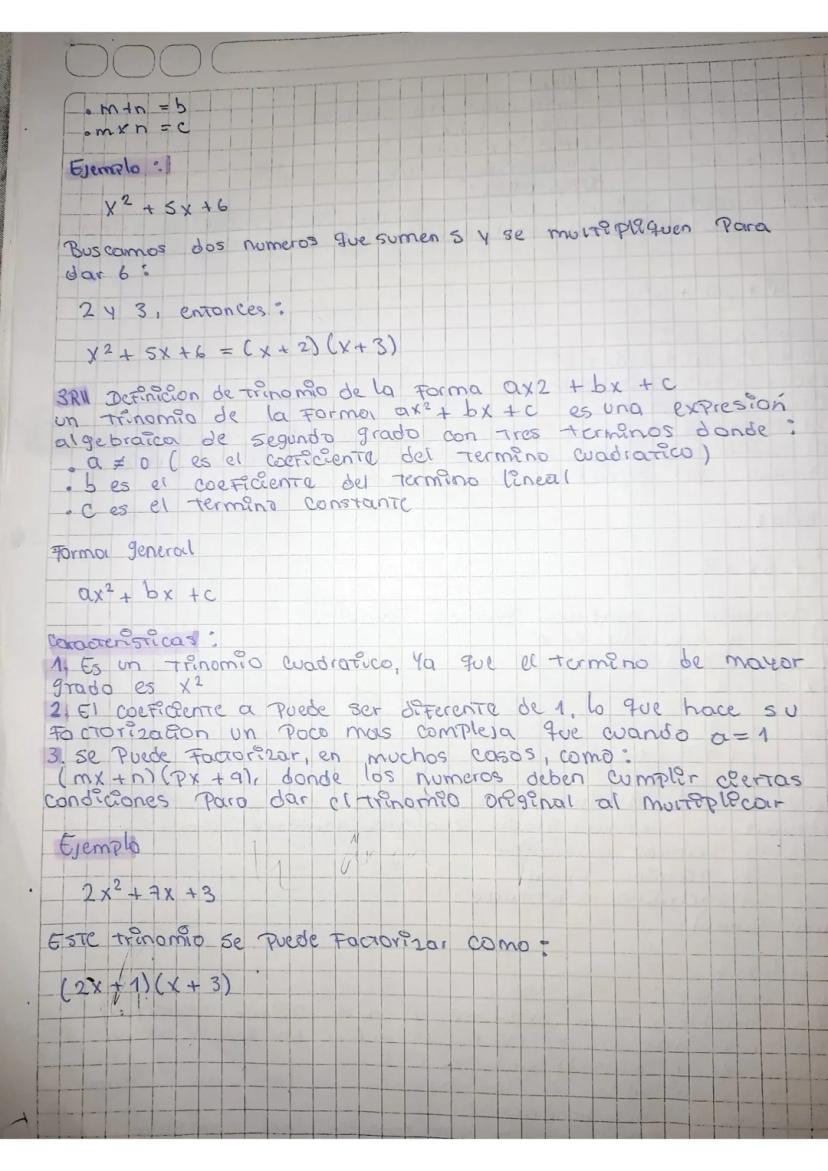 . m+n = b
. m x n = c
Ejemplo :
x² + 5x + 6
Buscamos dos numeros que sumen 5 y se multipliquen Para
dar 6 :
2 y 3, entonces :
x² + 5x + 6 = (x + 2) (x + 3)
Definicion de trinomio de la forma ax2 + bx + c
un trinomio de la forma ax² + bx + c es una expresion
algebraica de segundo grado con tres terminos donde :
. a ≠ 0 ( es el coeficiente del termino cuadratico )
. b es el coeficiente del termino lineal
. c es el termino constante
Forma general
ax² + bx + c
Caracteristicas :
1. Es un trinomio cuadratico, Ya que el termino de mayor
grado es x²
2. El coeficiente a puede ser diferente de 1, lo que hace su
factorizacion un poco mas compleja que cuando a = 1
3. se Puede Factorizar, en muchos casos, como :
(mx + n) (px + q), donde los numeros deben cumplir ciertas
condiciones para dar el trinomio original al multiplicar
Ejemplo
2x² + 7x + 3
Este trinomio se puede Factorizar como :
(2x + 1) (x + 3)